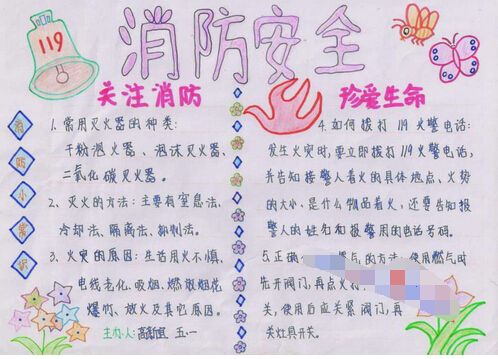 119
消防安全
关注消防
珍爱生命
消防小常识
1、常用灭火器的种类:
干粉灭火器、泡沫灭火器、
二氧化碳灭火器。
2、灭火的方法:主要有窒息法、
冷却法、隔离法、抑制法。
3、火灾的原因:生活用火不慎,
电线老化、吸烟、燃放烟花
爆竹、放火及其它原因。
主办人: 五一
4、如何拨打119火警电话:
发生火灾时,要立即拨打119火警电话,
并告知接警人着火的具体地点、火势
的大小、是什么物品着火,还要告知报
警人的姓名和报警用的电话号码。
5、正确 燃气的方法:使用燃气时
先开阀门,再点火
关,使用后应关紧阀门,再
关灶具开关。